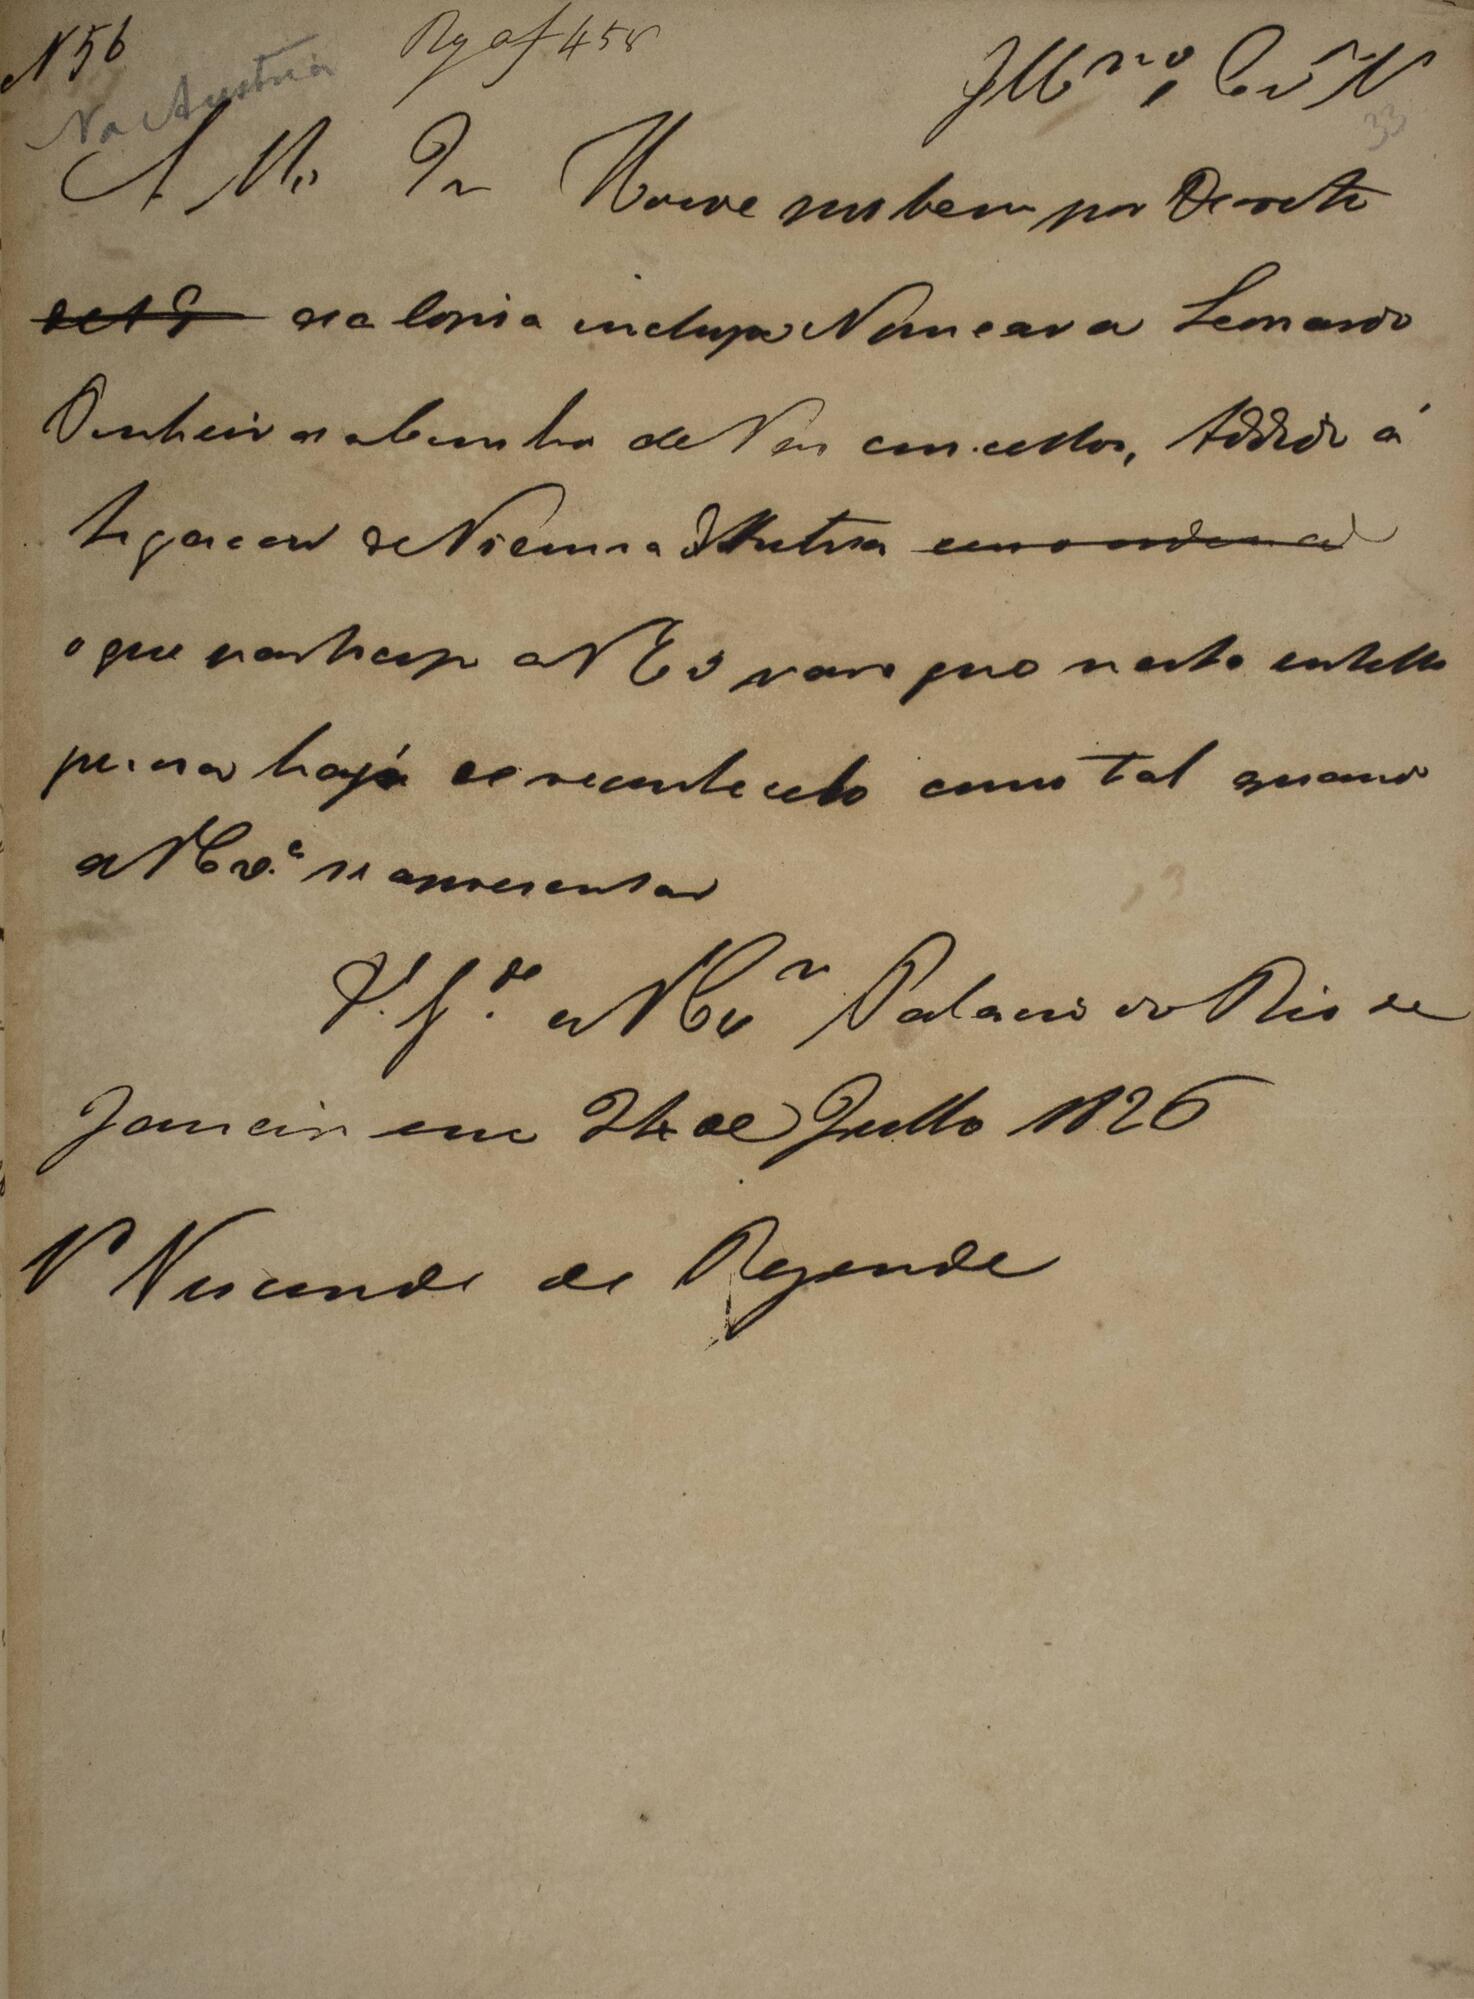 N 56
Rg af 458
Na Austria
Illmo, Exmo
33
S. M. I. Houve por bem por Decreto
da Copia incluza Nomear a Leonardo
Pinheiro da Cunha de Vasconcellos, Addido á
Legação de Vienna d'Austria
o que participo a V Ex para que nesta intelli
gencia haja de reconhecelo como tal quando
a V Exa se apresentar
D. Gde a V Exa Palacio do Rio de
Janeiro em 24 de Julho 1826
Visconde de Rezende